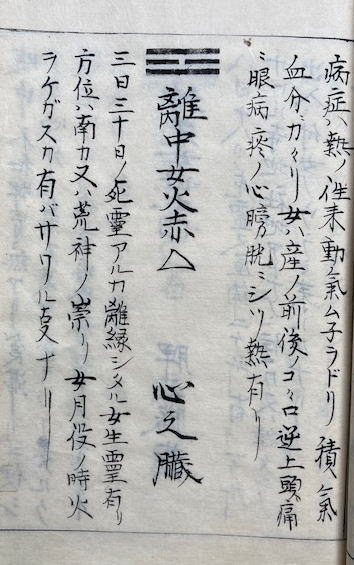 病症ハ熱ノ往来動氣ム子ヲドリ積氣
血分ガヽリ女ハ産ノ前後ノコヽロ逆上頭痛
ニ眼病疼ノ心膀胱ニシツ熱有リ
☲ 離中女火赤△ 心之臓
三日三十日ノ死霊アルカ離縁シタル女生霊有リ
方位ハ南カ又ハ荒神ノ祟リ女月役ノ時火
ヲケガスカ有バサワル叓ナリ